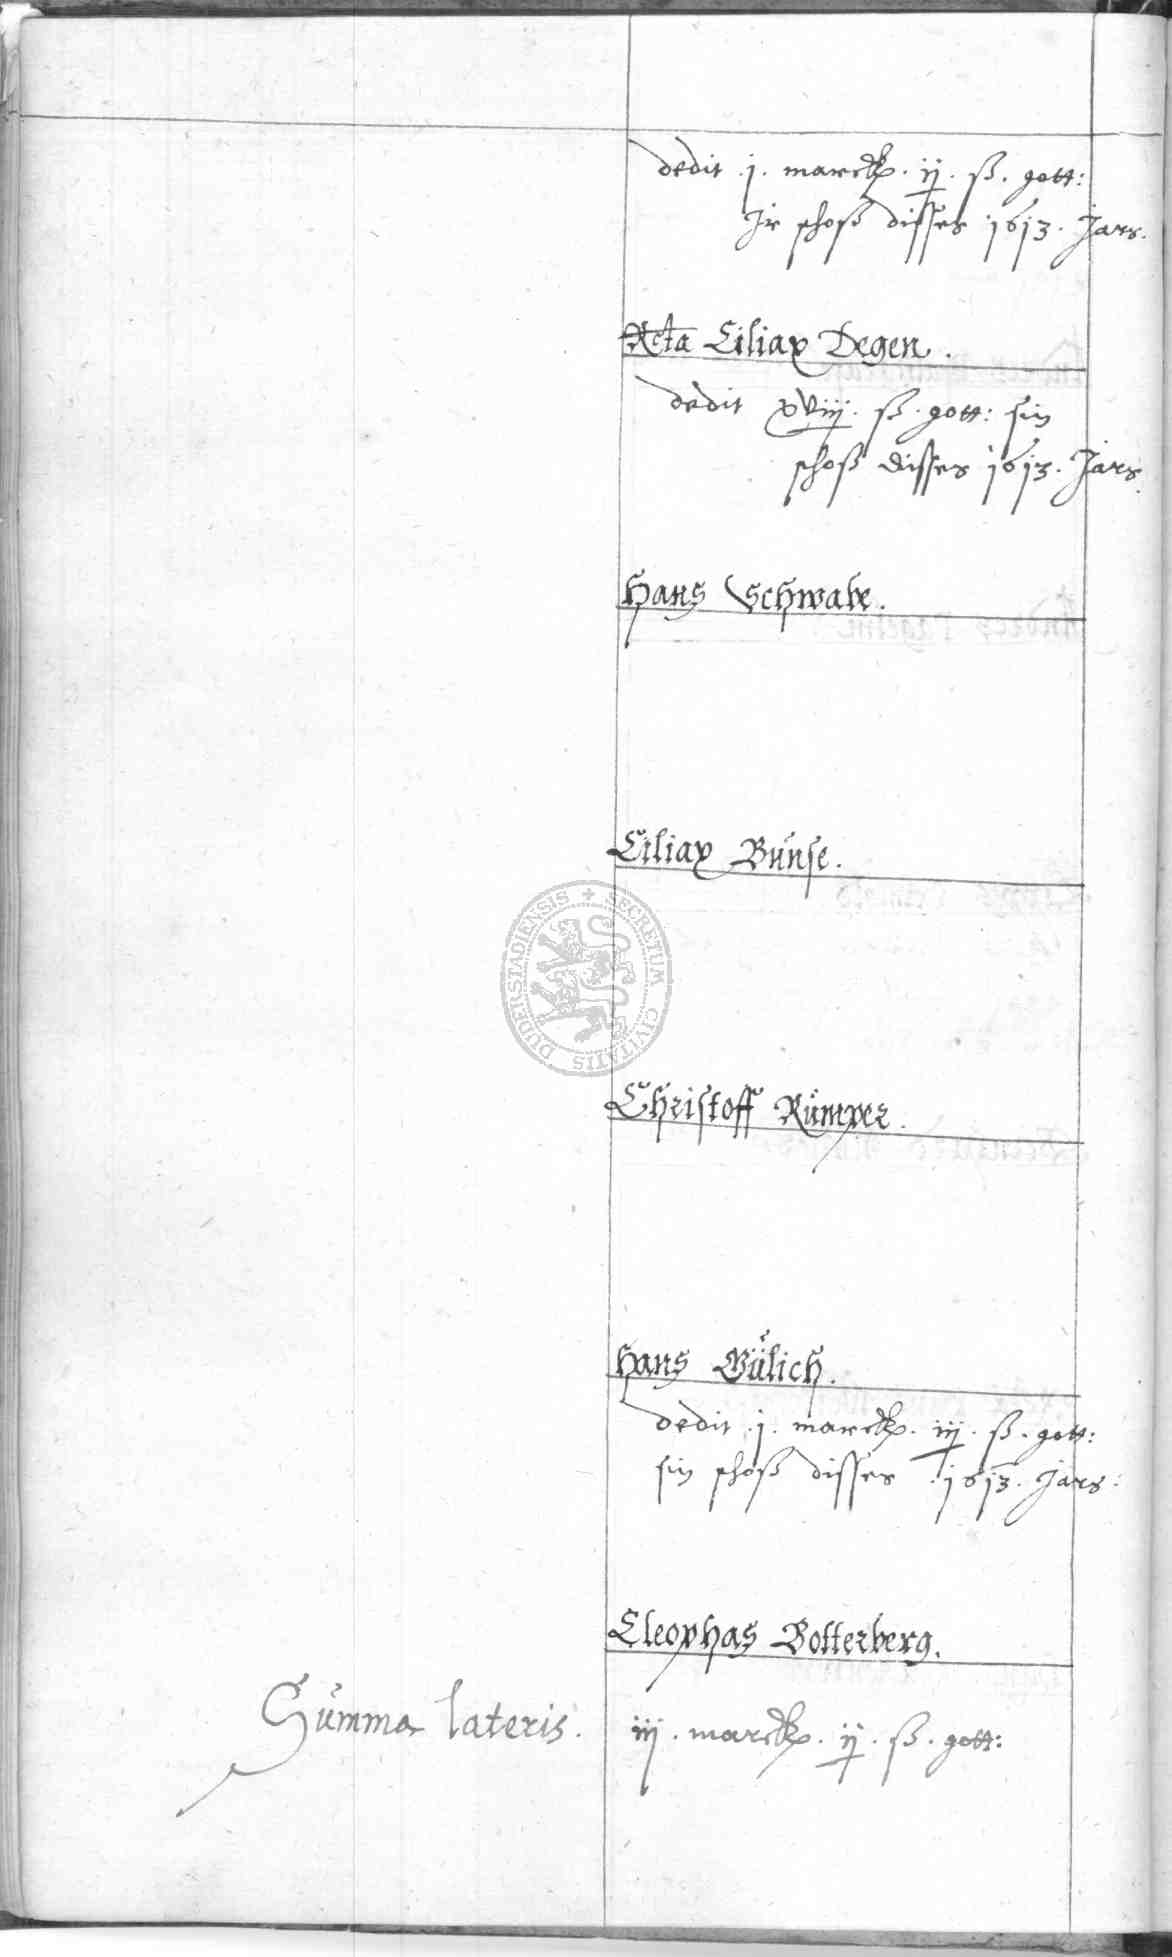 dedit .j. marck. ij. ß. gott:
Ir schoß disses 1613. Jars.
Relicta Ciliax Degen.
dedit xviij. ß. gott: sin
schoß disses 1613. Jars.
Hans Schwabe.
Ciliax Bunse.
SECRETUM CIVITATIS DUDERSTADIENSIS
Christoff Rümper.
Hans Gülich.
dedit .j. marck. iij. ß. gott:
sin schoß disses .1613. Jars:
Cleophas Botterberg.
Summa lateris. iij. marck. ij. ß. gott: